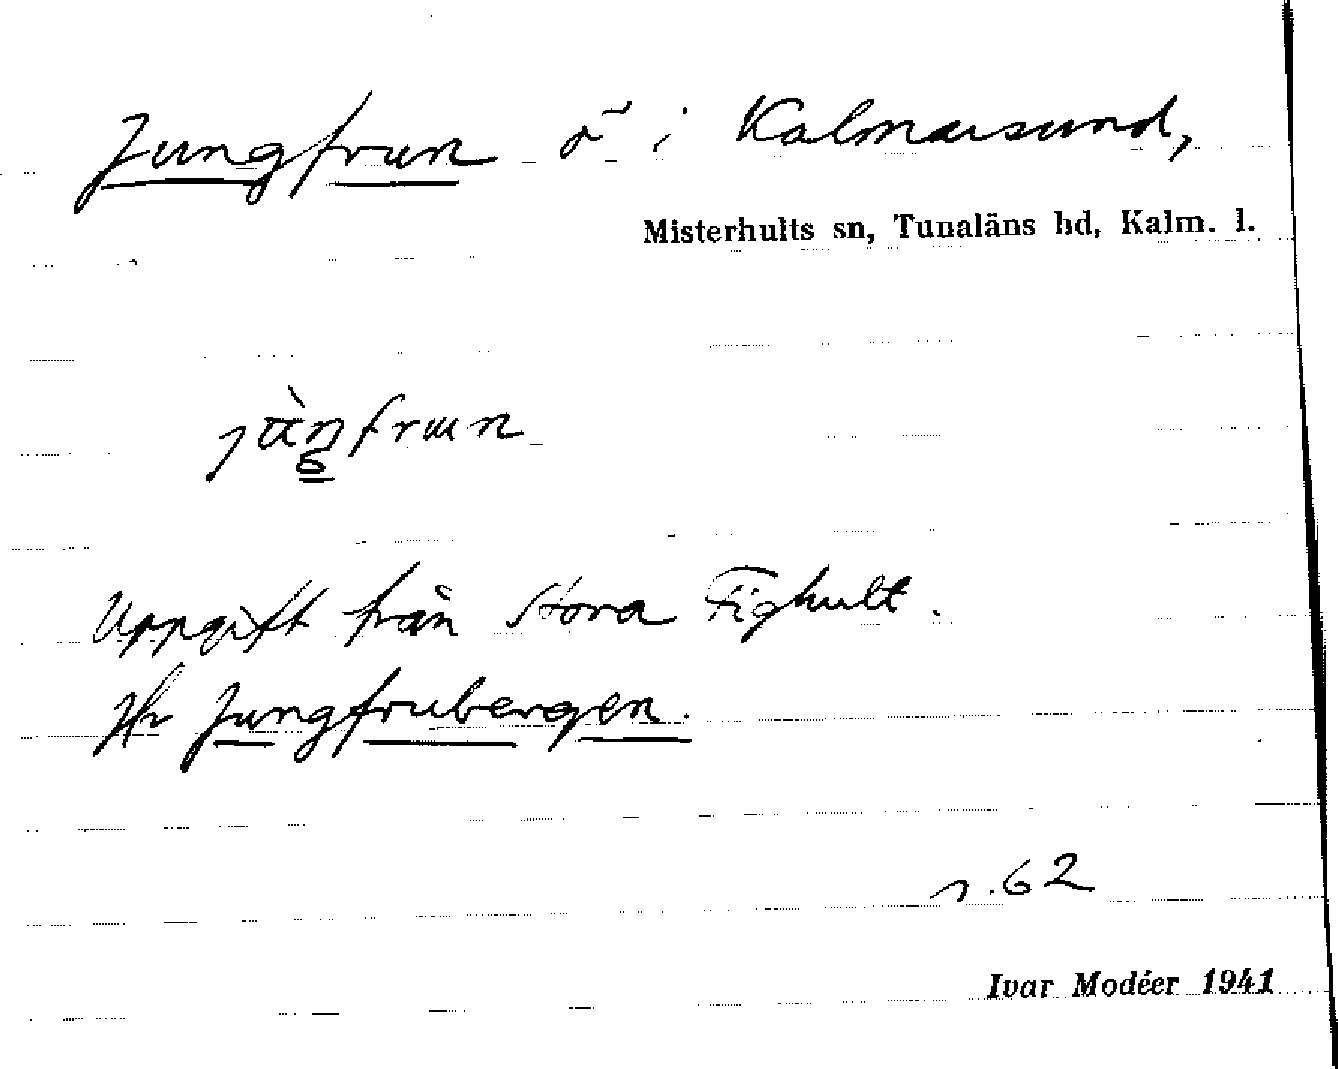 Jungfrun ö i Kalmarsund,
Misterhults sn, Tunaläns hd, Kalm. l.
Uppgift från Stora Fighult.
Jfr Jungfrubergen.
s. 62
Ivar Modéer 1941